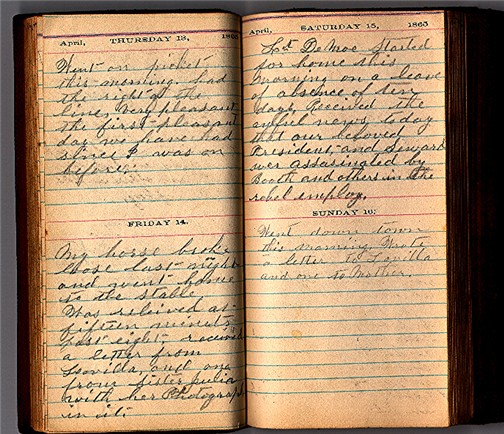 April, THURSDAY 13, 1865
Went on picket
this morning. had
the right of the
line, very pleasant
the first pleasant
day we have had
since I was on
before.
FRIDAY 14.
My horse broke
loose last night
and went home
to the stable
Was relieved at
fifteen minuts
past eight, received
a letter from
Lovilla, and one
from Sister Julia
with her Photograph
in it.
April, SATURDAY 15, 1865
Lt De Moe started
for home this
morning on a leave
of absence of ten
days, Received the
awful news to day
that our beloved
President, and Seward
wer assasingted by
Booth and others in the
rebel employ.
SUNDAY 16.
Went down town
this morning. Wrote
a letter to Lovilla
and one to Mother.